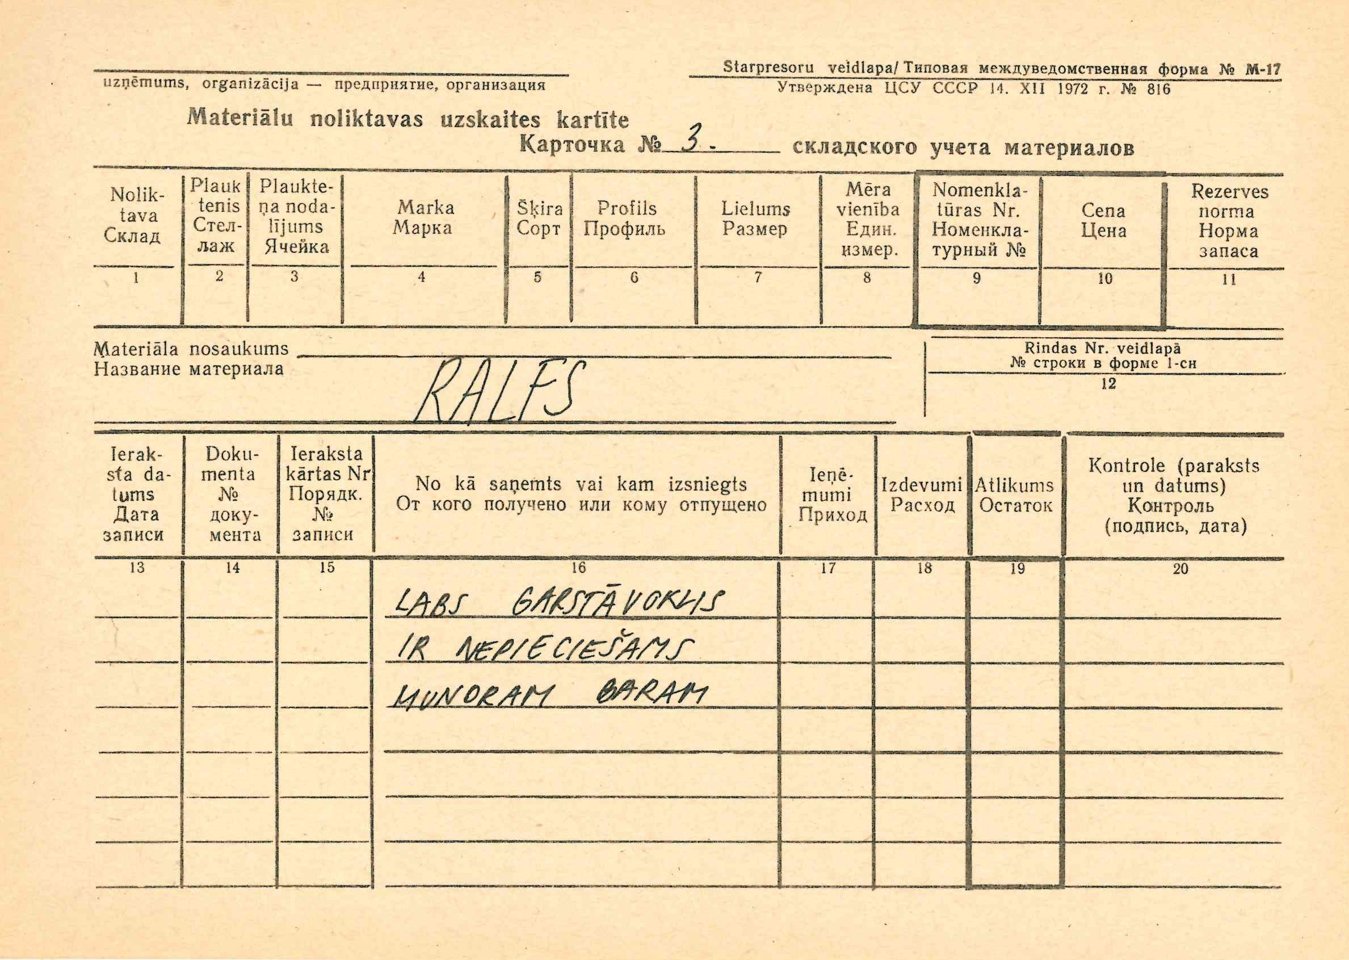 Starpresoru veidlapa/Типовая междуведомственная форма № М-17
uzņēmums, organizācija — предприятие, организация
Утверждена ЦСУ СССР 14. XII 1972 г. № 816
Materiālu noliktavas uzskaites kartīte
Карточка № 3. складского учета материалов
Nolik-
tava
Склад
Plauk
tenis
Стел-
лаж
Plaukte-
ņa noda-
lījums
Ячейка
Marka
Марка
Šķira
Сорт
Profils
Профиль
Lielums
Размер
Mēra
vienība
Един.
измер.
Nomenkla-
tūras Nr.
Номенкла-
турный №
Cena
Цена
Rezerves
norma
Норма
запаса
1 2 3 4 5 6 7 8 9 10 11
Materiāla nosaukums
Название материала
RALFS
Rindas Nr. veidlapā
№ строки в форме 1-сн
12
Ierak-
sta da-
tums
Дата
записи
Doku-
menta
№
доку-
мента
Ieraksta
kārtas Nr
Порядк.
№
записи
No kā saņemts vai kam izsniegts
От кого получено или кому отпущено
Ieņē-
mumi
Приход
Izdevumi
Расход
Atlikums
Остаток
Kontrole (paraksts
un datums)
Контроль
(подпись, дата)
13 14 15 16 17 18 19 20
LABS GARSTĀVOKLIS
IR NEPIECIEŠAMS
MUNDRAM GARAM